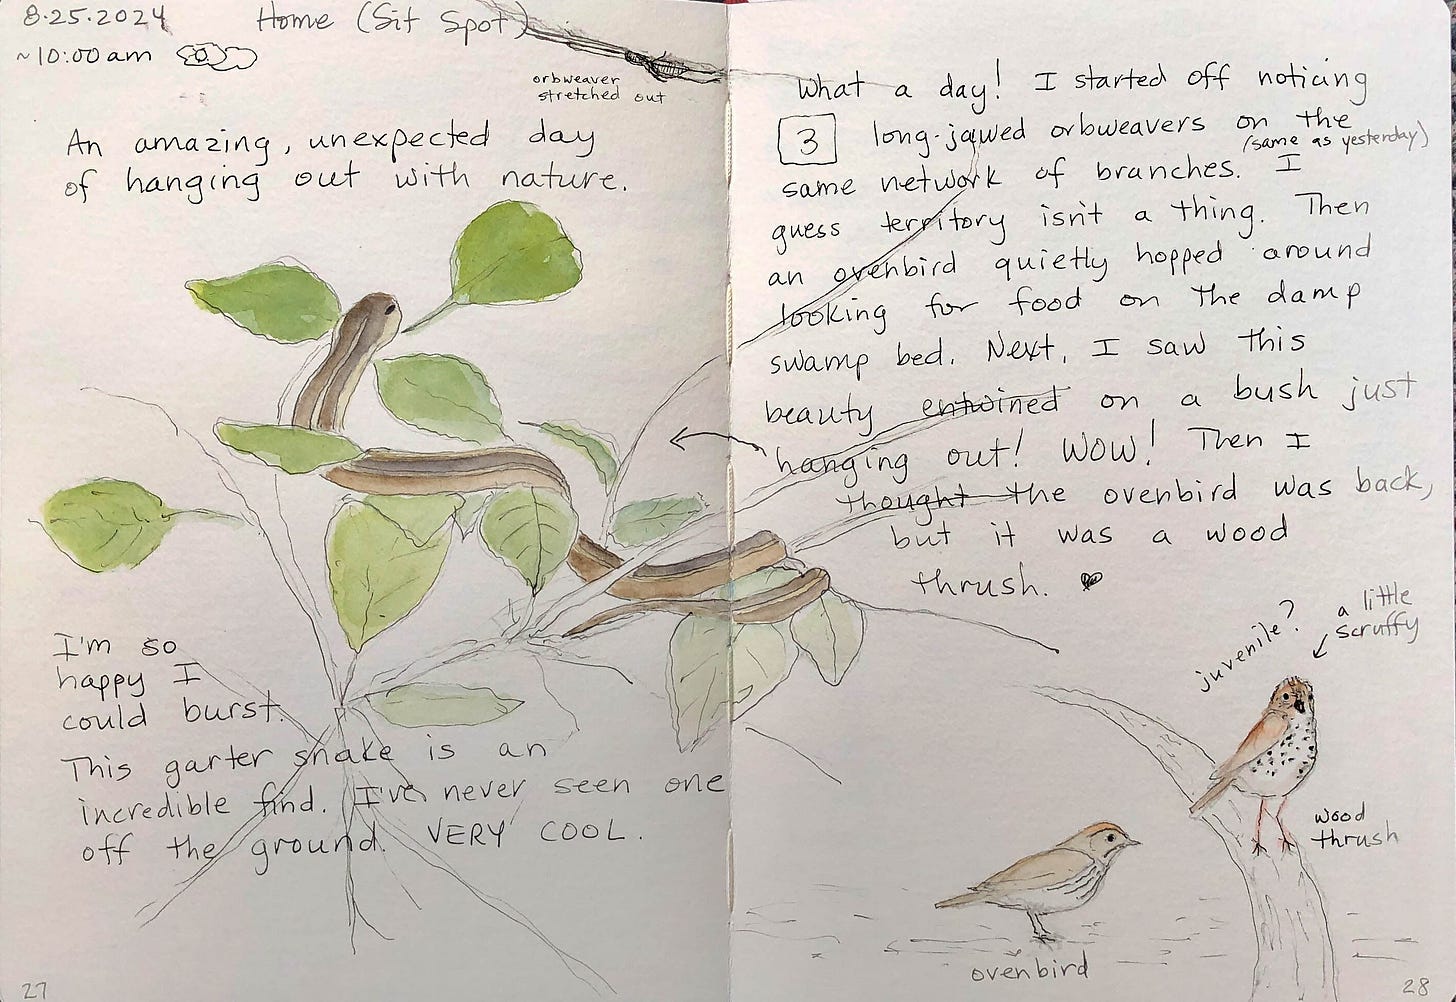 8.25.2024 Home (Sit Spot)
~10:00am
orbweaver
stretched out
An amazing, unexpected day
of hanging out with nature.
I'm so
happy I
could burst.
This garter snake is an
incredible find. I've never seen one
off the ground. VERY COOL.
27
What a day! I started off noticing
3 long-jawed orbweavers on the
(same as yesterday)
same network of branches. I
guess territory isn't a thing. Then
an ovenbird quietly hopped around
looking for food on the damp
swamp bed. Next, I saw this
beauty entwined on a bush just
hanging out! WOW! Then I
thought the ovenbird was back,
but it was a wood
thrush.
juvenile?
a little
scruffy
wood
thrush
ovenbird
28